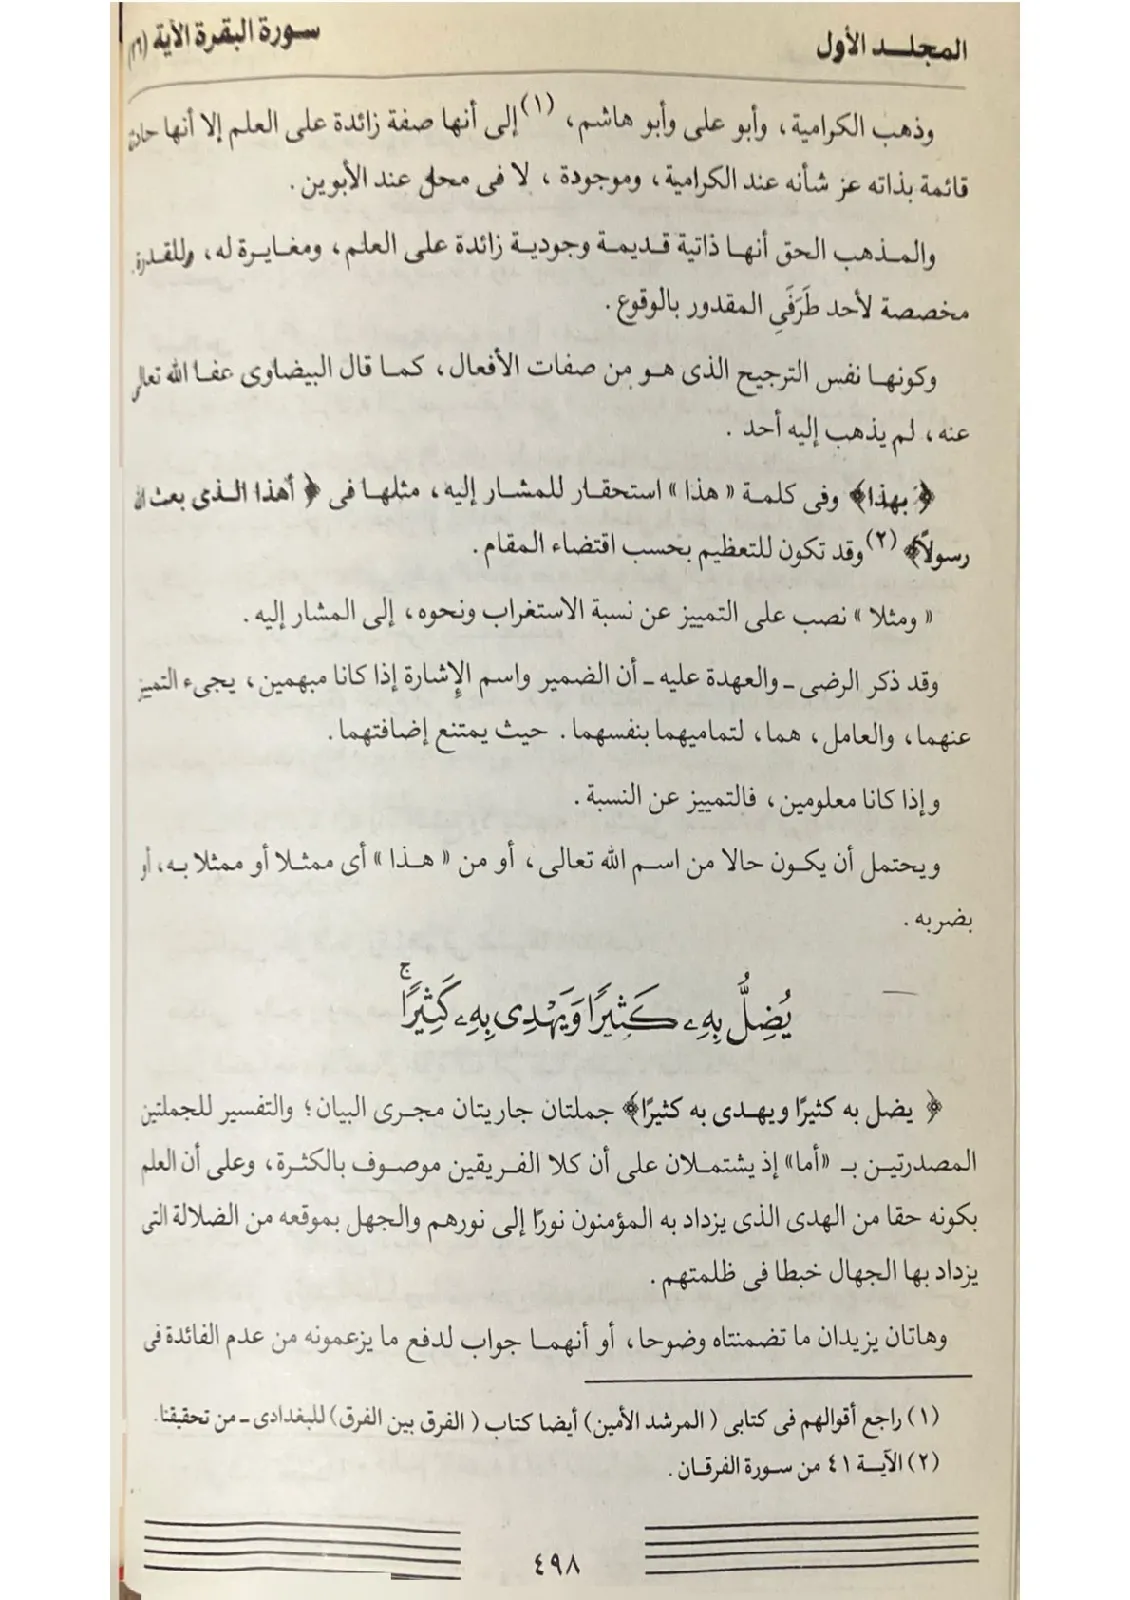 المجلد الأول
سورة البقرة الآية (٢٦)
وذهب الكرامية، وأبو على وأبو هاشم، (١) إلى أنها صفة زائدة على العلم إلا أنها حادثة
قائمة بذاته عز شأنه عند الكرامية، وموجودة، لا فى محل عند الأبوين.
والمذهب الحق أنها ذاتية قديمة وجودية زائدة على العلم، ومغايرة له، وللقدرة،
مخصصة لأحد طَرَفَي المقدور بالوقوع.
وكونها نفس الترجيح الذى هو من صفات الأفعال، كما قال البيضاوى عفا الله تعالى
عنه، لم يذهب إليه أحد.
﴿بهذا﴾ وفى كلمة « هذا » استحقار للمشار إليه، مثلها فى ﴿أهذا الذى بعث الله
رسولاً﴾ (٢) وقد تكون للتعظيم بحسب اقتضاء المقام.
« ومثلا » نصب على التمييز عن نسبة الاستغراب ونحوه، إلى المشار إليه.
وقد ذكر الرضى ـ والعهدة عليه ـ أن الضمير واسم الإشارة إذا كانا مبهمين، يجىء التمييز
عنهما، والعامل، هما، لتماميهما بنفسهما. حيث يمتنع إضافتهما.
وإذا كانا معلومين، فالتمييز عن النسبة.
ويحتمل أن يكون حالا من اسم الله تعالى، أو من « هذا » أى ممثلا أو ممثلا به، أو
بضربه.
يُضِلُّ بِهِۦ كَثِيرًا وَيَهْدِى بِهِۦ كَثِيرًاۚ
﴿يضل به كثيرًا ويهدى به كثيرًا﴾ جملتان جاريتان مجرى البيان؛ والتفسير للجملتين
المصدرتين بـ «أما» إذ يشتملان على أن كلا الفريقين موصوف بالكثرة، وعلى أن العلم
بكونه حقا من الهدى الذى يزداد به المؤمنون نورًا إلى نورهم والجهل بموقعه من الضلالة التى
يزداد بها الجهال خبطا فى ظلمتهم.
وهاتان يزيدان ما تضمنتاه وضوحا، أو أنهما جواب لدفع ما يزعمونه من عدم الفائدة فى
(١) راجع أقوالهم فى كتابى (المرشد الأمين) أيضا كتاب (الفرق بين الفرق) للبغدادى ـ من تحقيقنا.
(٢) الآية ٤١ من سورة الفرقان.
٤٩٨